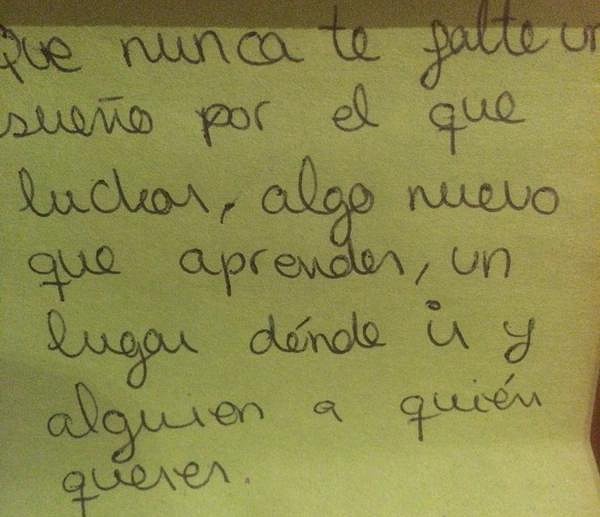 Que nunca te falte un
sueño por el que
luchar, algo nuevo
que aprender, un
lugar dónde ir y
alguien a quién
querer.